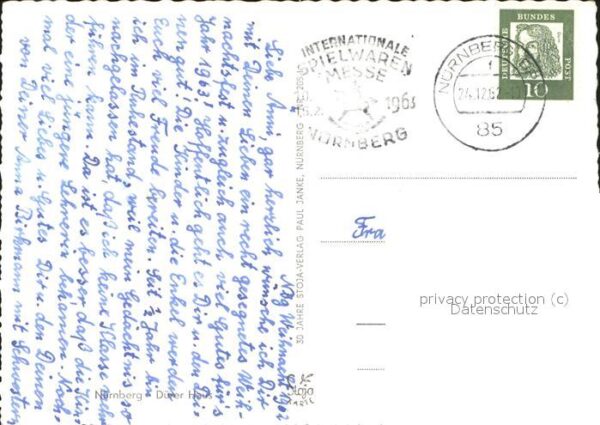 Nbg Weihnacht 1962
Liebe Anni, gar herzlich wünsche ich Dir
mit Deinen Lieben ein recht gesegnetes Weih-
nachtsfest u. zugleich auch viel Gutes für's
Jahr 1963! Hoffentlich geht es Dir u. den Dei-
nen gut! Die Kinder u. die Enkel werden
Euch viel Freude bereiten. Seit ½ Jahr bin
ich im Ruhestand, weil mein Gedächtnis so
nachgelassen hat, daß ich keine Klasse mehr
führen kann. Da ist es besser, daß die Kin-
der eine jüngere Lehrerin bekamen. Noch-
mal viel Liebes u. Gutes Dir u. den Deinen
von Deiner Anna Birkmann mit Schwestern
Nürnberg - Dürer Haus
30 JAHRE STOJA-VERLAG PAUL JANKE, NÜRNBERG
Stoja
INTERNATIONALE
SPIELWAREN
MESSE
1963
NÜRNBERG
NÜRNBERG
24.12.62
85
DEUTSCHE
BUNDES
POST
10
Fra
privacy protection (c)
Datenschutz